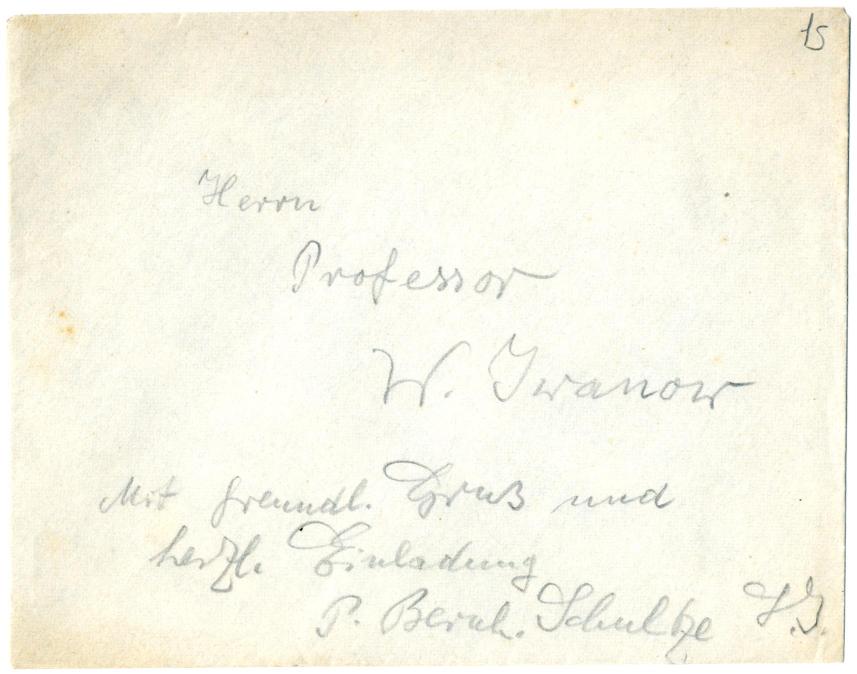 15
Herrn
Professor
W. Iwanow
Mit freundl. Gruß und
herzl. Einladung
P. Bernh. Schultze S.J.